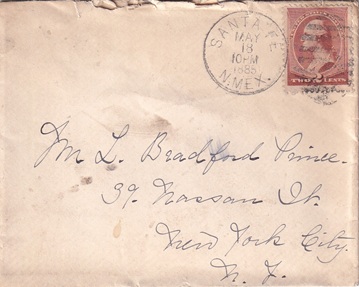 SANTA FE
MAY
18
10PM
1885
N. MEX.
TWO CENTS
Mr L. Bradford Prince.
39. Nassau St.
New York City.
N. Y.